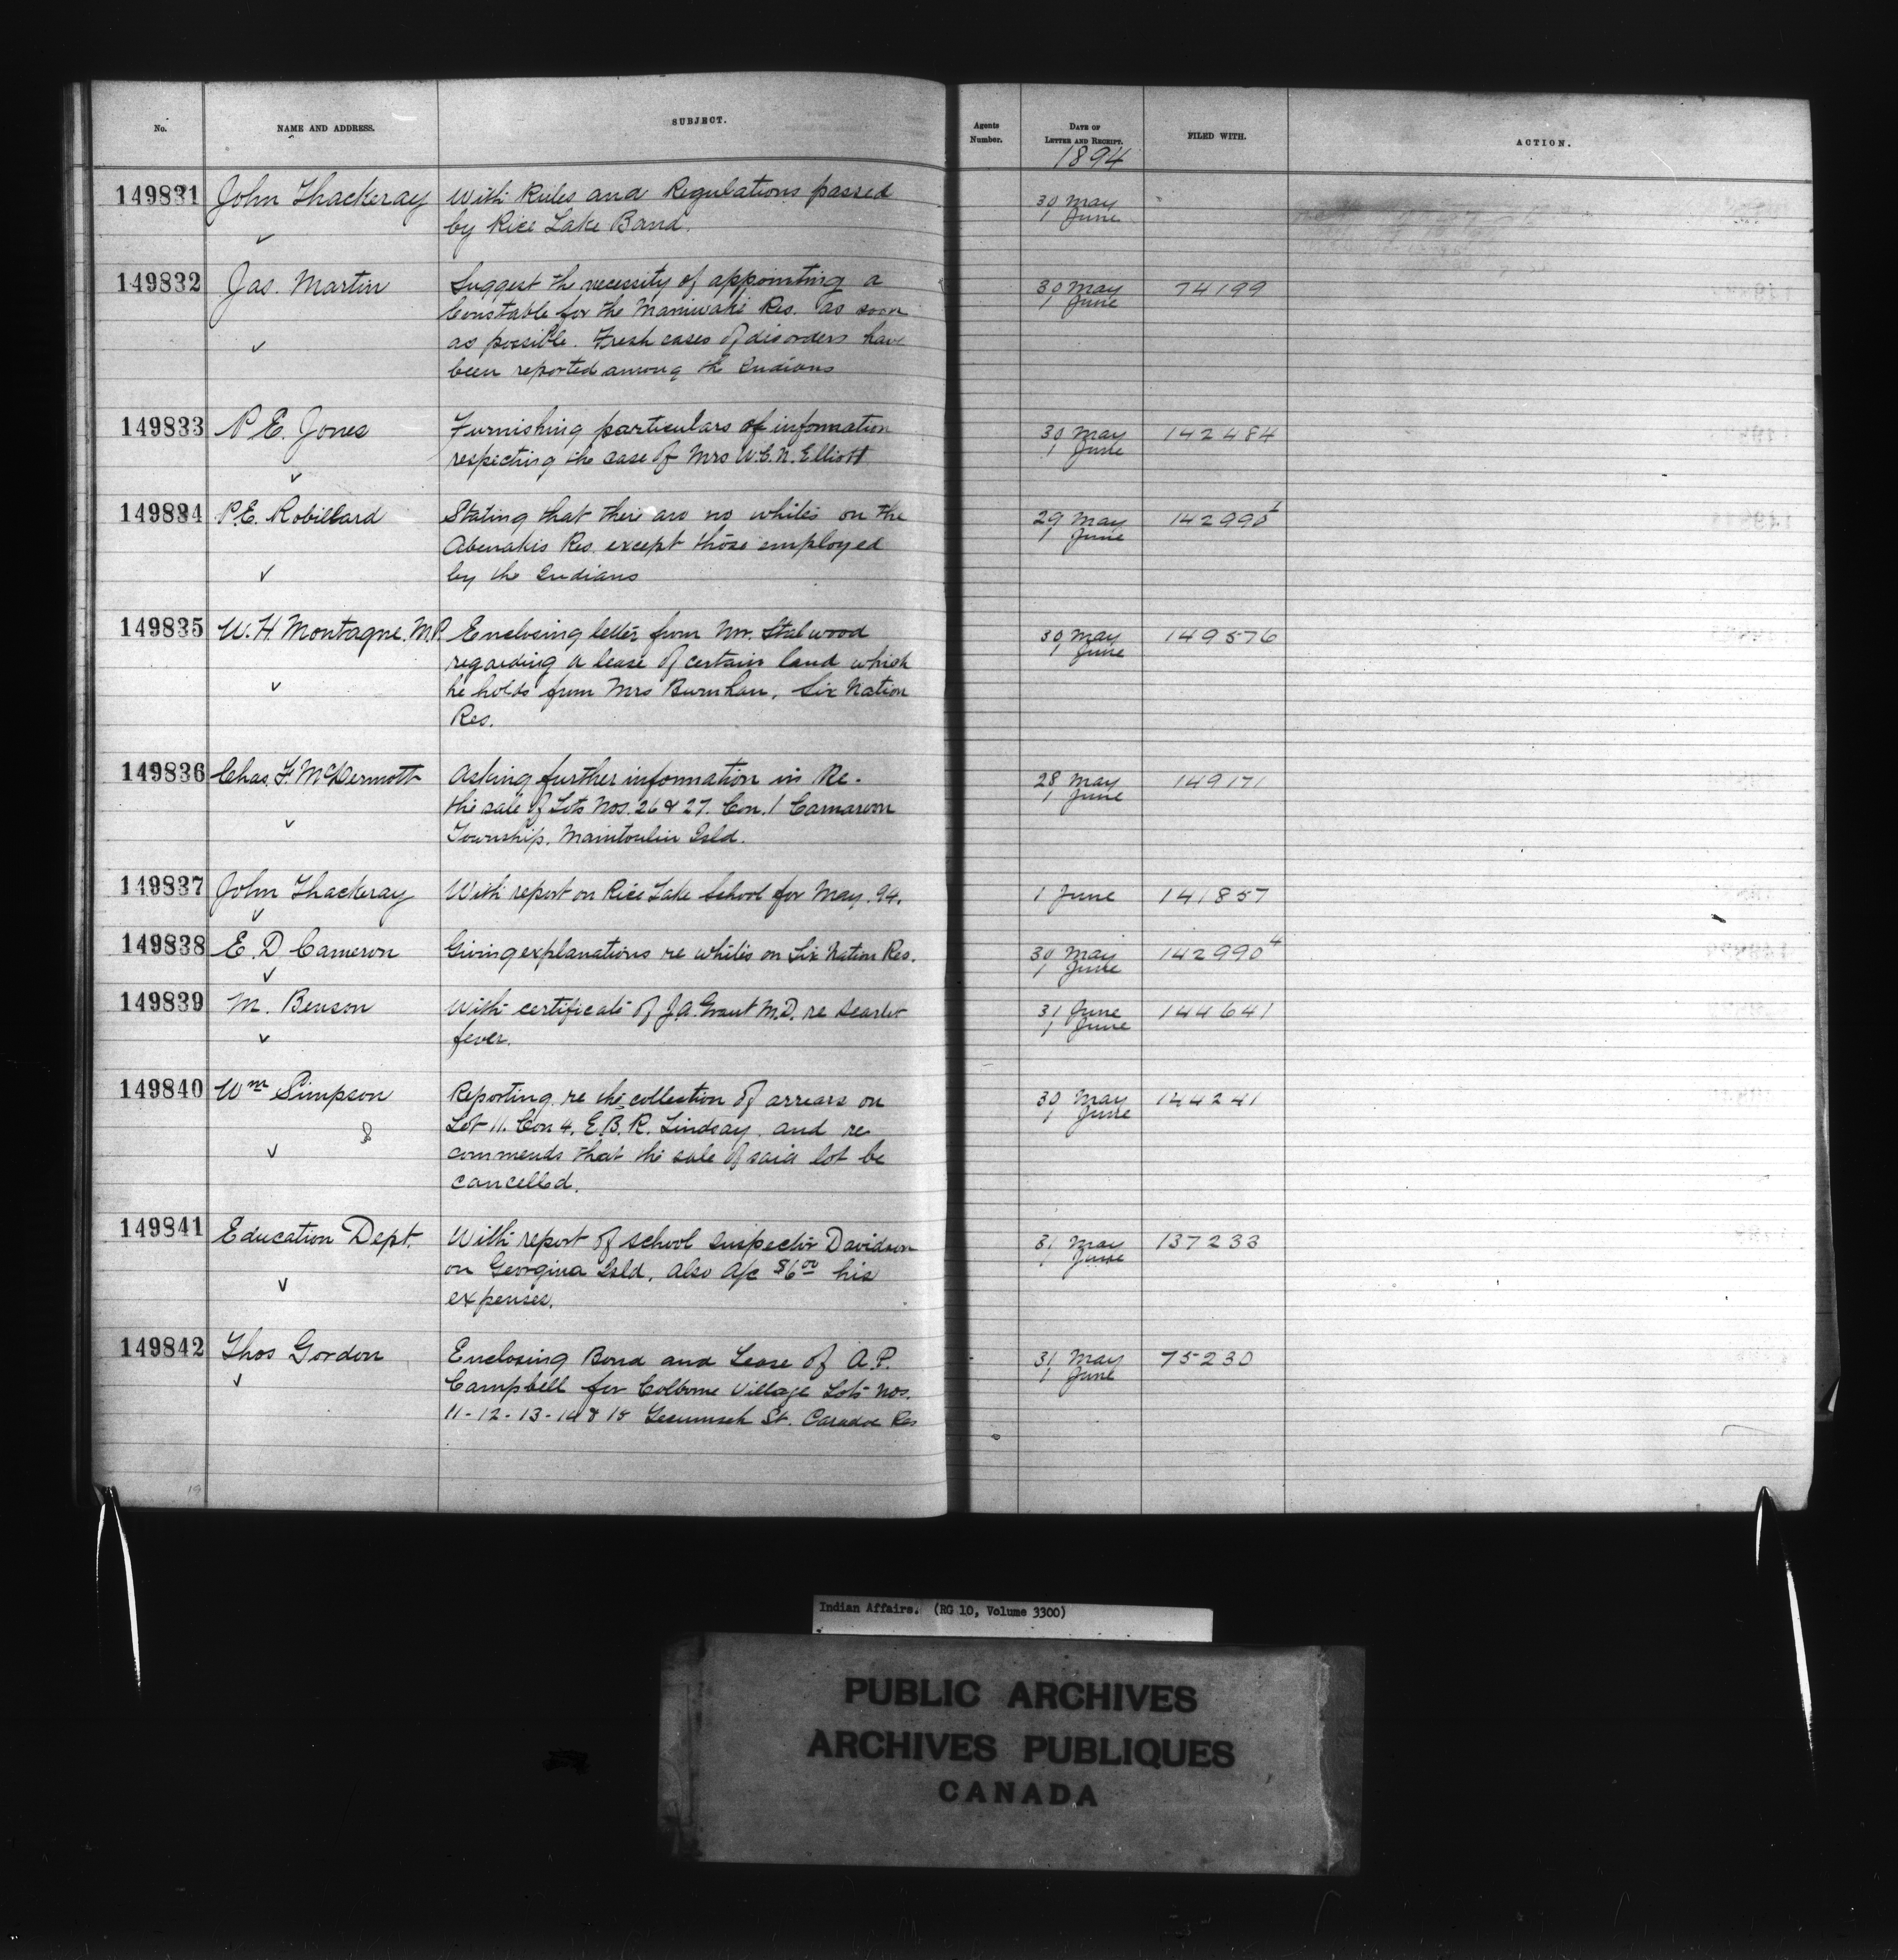 No. NAME AND ADDRESS. SUBJECT. Agents Number. DATE OF LETTER AND RECEIPT. FILED WITH. ACTION.
1894
149831 John Thackeray With Rules and Regulations passed 30 May
by Rice Lake Band. 1 June
149832 Jas. Martin Suggest the necessity of appointing a 30 May 74199
Constable for the Maniwaki Res. as soon 1 June
as possible. Fresh cases of disorders have
been reported among the Indians
149833 P. E. Jones Furnishing particulars of information 30 May 142484
respecting the case of Mrs W.C.N. Elliott 1 June
149834 P.E. Robillard Stating that there are no whites on the 29 May 142990
Abenakis Res. except those employed 1 June
by the Indians
149835 W. H Montague. M.P. Enclosing letter from Mr. Stalwood 30 May 149576
regarding a lease of certain land which 1 June
he holds from Mrs Burnham, Six Nation
Res.
149836 Chas. F. McDermott Asking further information in Re- 28 May 149171
the sale of Lots Nos. 26 & 27. Con. 1 Carnarvon 1 June
Township. Manitoulin Isld.
149837 John Thackeray With report on Rice Lake School for May. 94. 1 June 141857
149838 E. D Cameron Giving explanations re whites on Six Nation Res. 30 May 142990 4
1 June
149839 M. Benson With certificate of J.A. Grant M.D. re Scarlet 31 June 144641
fever. 1 June
149840 Wm Simpson Reporting re the collection of arrears on 30 May 144241
Lot 11. Con 4. E.B.R. Lindsay and re 1 June
commends that the sale of said lot be
cancelled.
149841 Education Dept. With report of school inspector Davidson 31 May 137233
on Georgina Isld. Also A/c $6 00 his 1 June
expenses.
149842 Thos Gordon Enclosing Bond and Lease of A.P. 31 May 75230
Campbell for Colborne Village Lots Nos. 1 June
11-12-13-14 & 15 Tecumseh St. Caradoc Res
19
Indian Affairs. (RG 10, Volume 3300)
PUBLIC ARCHIVES
ARCHIVES PUBLIQUES
CANADA